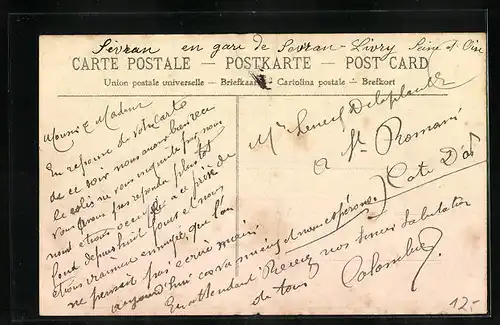 Sevran en gare de Sevran-Livry Seine et Oise
CARTE POSTALE – POSTKARTE – POST CARD
Union postale universelle – Briefkaart – Cartolina postale – Brefkort
Monsieur Madame
En reponse de votre carte
de ce soir nous avons bien reçu
le colis ne vous inquiete pas, nous
vous avons pas repondu plus tot
nous etions occupé a ce de
fond depuis huit jours et nous
etions vraiment ennuyé que l'on
ne pensait pas ecrire mais
aujourd'hui cas va mieux et nous espérons
En attendant Recevez nos Sincere Salutation
de tous Colombier
Mr
a St Romain
Cote D'or
12.-